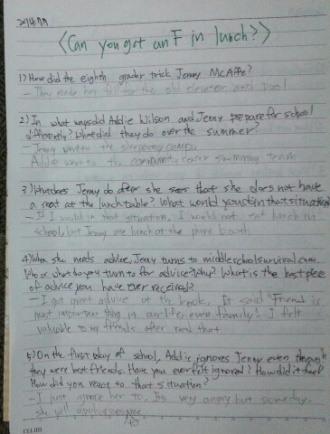 <Can you get an F in lunch?>
1) How did the eighth grader trick Jenny McAfee?
- They made her fall for the old elevator and pool
2) In what ways did Addie Wilson and Jenny prepare for school
differently? What did they do over the summer?
- Jenny went to the sleepaway camp.
Addie went to the community center swimming team
3) What does Jenny do after she sees that she does not have
a seat at the lunch table? What would you do in that situation
- If I would in that situation, I would not eat lunch in
school, but Jenny ate lunch at the phone booth
4) When she needs advice, Jenny turns to middleschoolsurvival.com.
Who or what do you turn to for advice? Why? What is the best piece
of advice you have ever received?
- I get great advice at the book. It said Friend is
most important thing in our life, even family! I felt
valuable to my friends after read that.
5) On the first day of school, Addie ignores Jenny even though
they were best friends. Have you ever felt ignored? How did it feel?
How did you react to that situation?
- I just ignore her to. Its very angry but someday,
she will